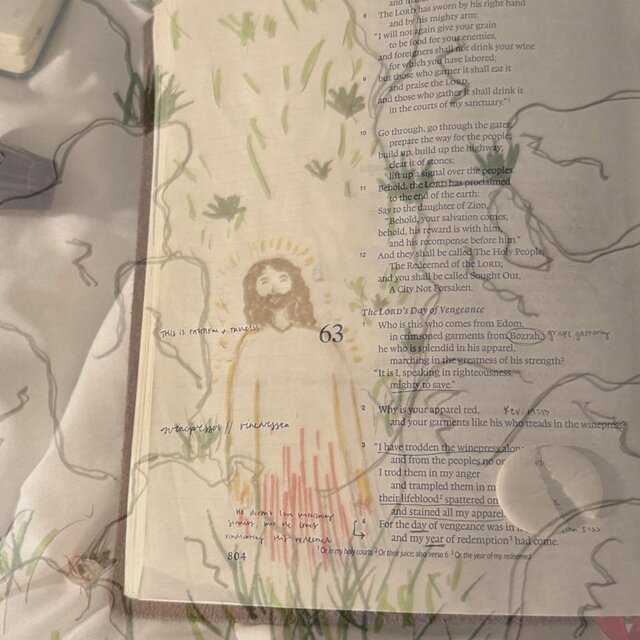 8 The LORD has sworn by his right hand
and by his mighty arm:
"I will not again give your grain
to be food for your enemies,
and foreigners shall not drink your wine
for which you have labored;
9 but those who garner it shall eat it
and praise the LORD,
and those who gather it shall drink it
in the courts of my sanctuary."1
10 Go through, go through the gates;
prepare the way for the people;
build up, build up the highway;
clear it of stones;
lift up a signal over the peoples.
11 Behold, the LORD has proclaimed
to the end of the earth:
Say to the daughter of Zion,
"Behold, your salvation comes;
behold, his reward is with him,
and his recompense before him."
12 And they shall be called The Holy People,
The Redeemed of the LORD;
and you shall be called Sought Out,
A City Not Forsaken.
The LORD's Day of Vengeance
63
1 Who is this who comes from Edom,
in crimsoned garments from Bozrah, grape gathering
he who is splendid in his apparel,
marching in the greatness of his strength?
"It is I, speaking in righteousness,
mighty to save."
2 Why is your apparel red,
and your garments like his who treads in the winepress?
3 "I have trodden the winepress alone
and from the peoples no
I trod them in my anger
and trampled them in m
their lifeblood2 spattered on
and stained all my apparel
4 For the day of vengeance was in
and my year of redemption3 had come.
THIS IS
winepresses //
He doesn't love
sinners, but he loves
vindicating his redeemed
804
1 Or in my holy courts 2 Or their juice; also verse 6 3 Or the year of my redeemed